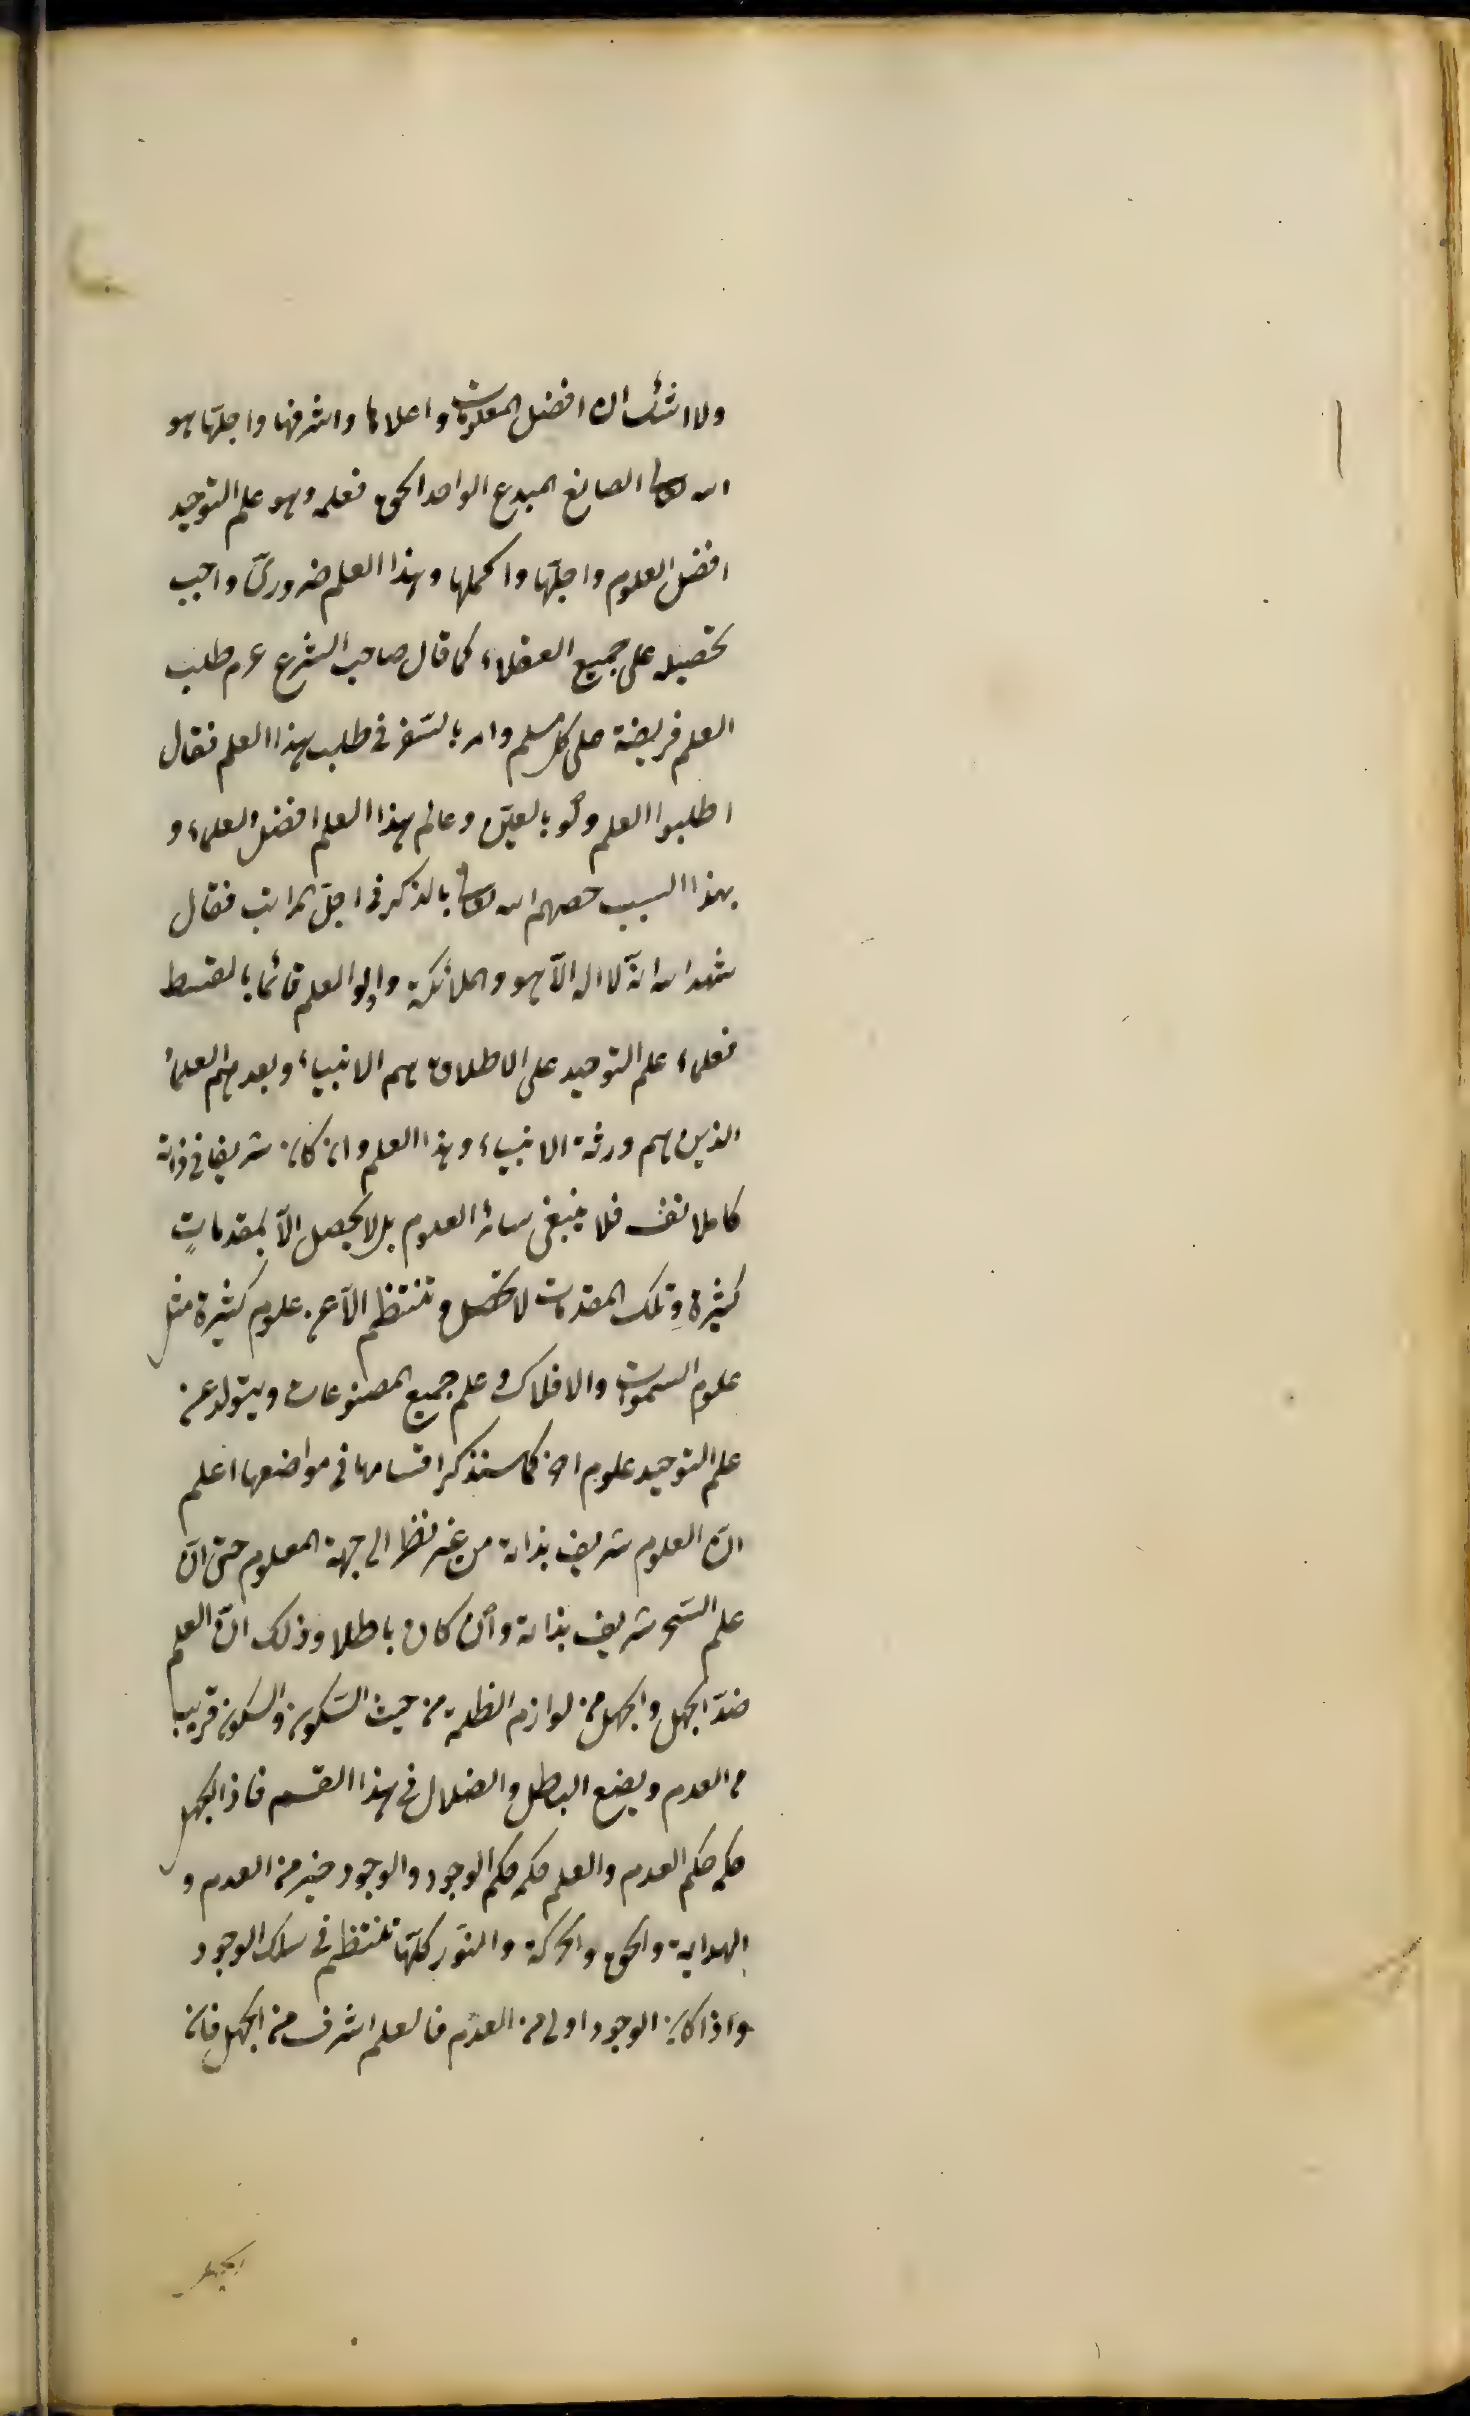 ولا شك ان افضل المعلومات واعلاها واشرفها واجلّها هو
الله تعالى الصانع المبدع الواحد الحق فعلمه وهو علم التوحيد
افضل العلوم واجلّها واكملها وهذا العلم ضروريّ واجب
تحصيله على جميع العقلاء كما قال صاحب الشرع عم طلب
العلم فريضة على كل مسلم وامر بالسّفر فى طلب هذا العلم فقال
اطلبوا العلم ولو بالصّين وعالم هذا العلم افضل العلماء و
بهذا السبب خصهم الله تعالى بالذكر فى اجلّ المراتب فقال
شهد الله انّه لا اله الّا هو والملائكة واولوا العلم قائما بالقسط
فعلماء علم التوحيد على الاطلاق هم الانبياء وبعدهم العلماء
الذين هم ورثة الانبياء وهذا العلم وان كان شريفا فى ذاته
كاملا بنفسه فلا ينبغى سائر العلوم بل لا يحصل الّا بمقدماتٍ
كثيرة وتلك المقدمات لا تحصل و تنتظم الّا عن علوم كثيرة مثل
علوم السموات والافلاك وعلم جميع المصنوعات ويتولد عن
علم التوحيد علوم اخر كما سنذكر اقسامها فى مواضعها اعلم
انّ العلوم شريف بذاته من غير نظر الى جهة المعلوم حتى انّ
علم السّحر شريف بذاته وان كان باطلا وذلك انّ العلم
ضدّ الجهل والجهل من لوازم الظلمة من حيث السّكون والسكون قريب
من العدم ويضع الباطل والضلال فى هذا القسم فاذا الجهل
حكمه حكم العدم والعلم حكمه حكم الوجود والوجود خير من العدم و
الهداية والحق والحركة والنّور كلّها تنتظم فى سلك الوجود
واذا كان الوجود اولى من العدم فالعلم اشرف من الجهل فان
الجهل